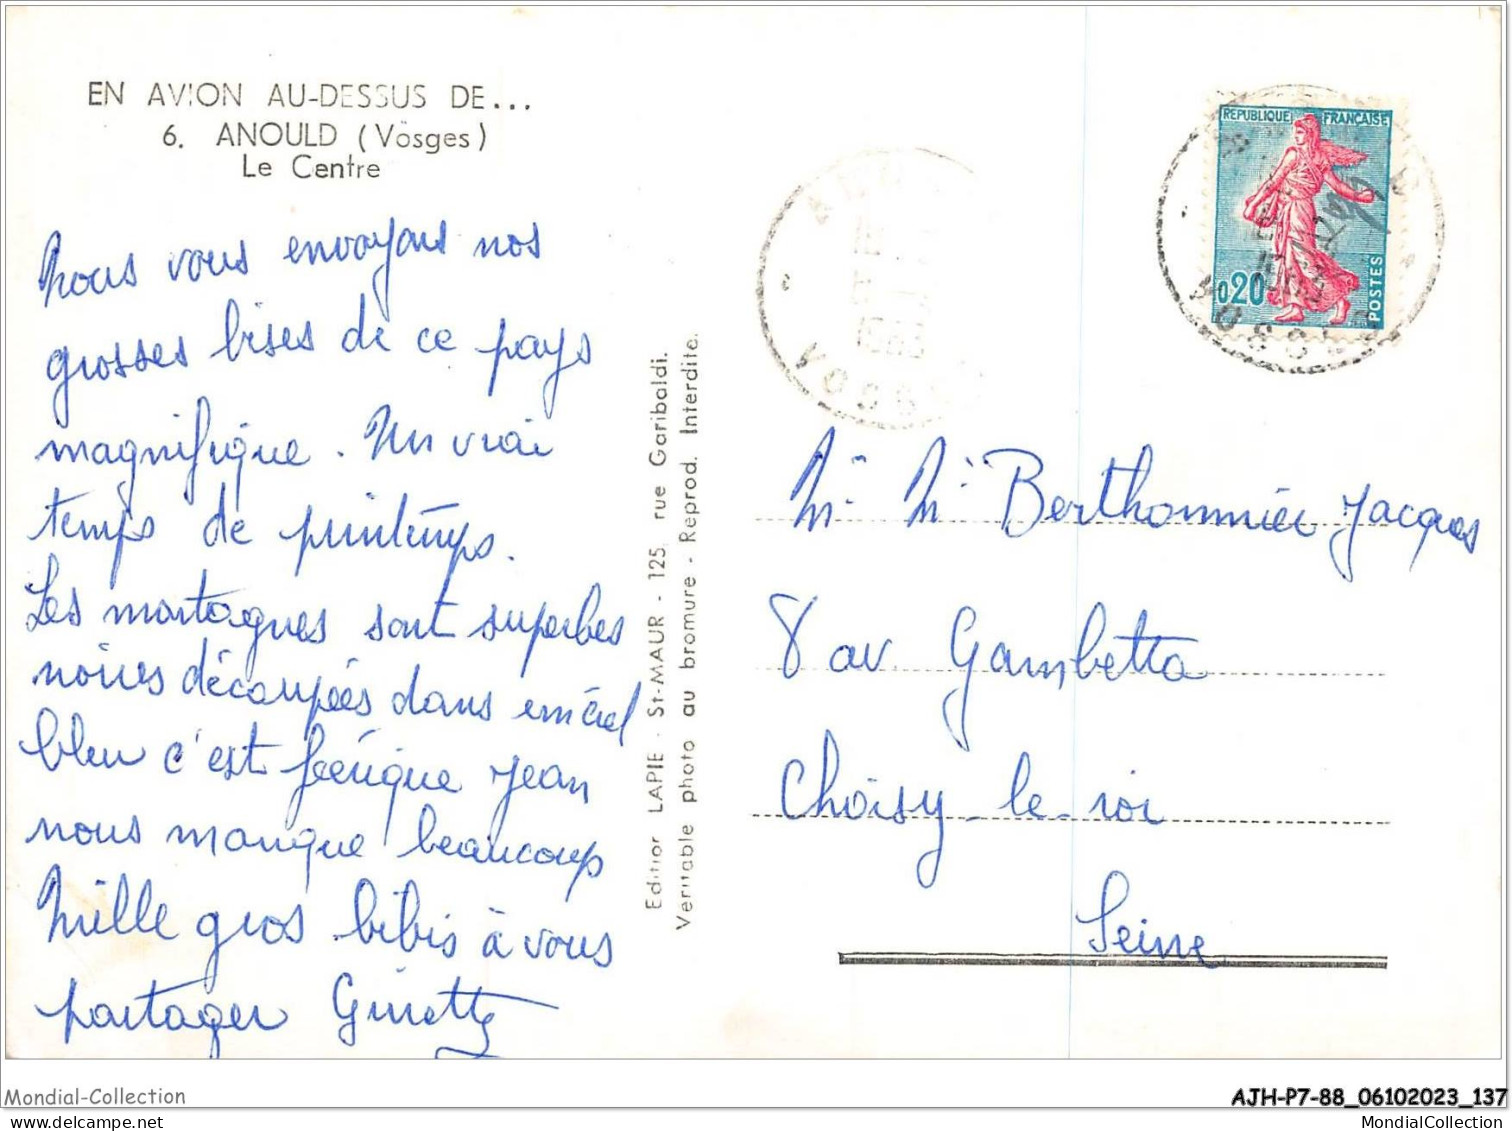 EN AVION AU-DESSUS DE...
6. ANOULD (Vosges)
Le Centre
Nous vous envoyons nos
grosses bises de ce pays
magnifique. Un vrai
temps de printemps.
Les montagnes sont superbes
noires découpées dans un ciel
bleu c'est féérique Jean
nous manque beaucoup
Mille gros bibis à vous
partager Ginette
Editior LAPIE - St-MAUR - 125, rue Garibaldi.
Veritable photo au bromure - Reprod. Interdite.
REPUBLIQUE FRANÇAISE
0,20
POSTES
VOSGES
1963
VOSGES
M. M. Berthommier Jacques
8 av Gambetta
Choisy-le-roi
Seine
Mondial-Collection
AJH-P7-88_06102023_137
MondialCollection